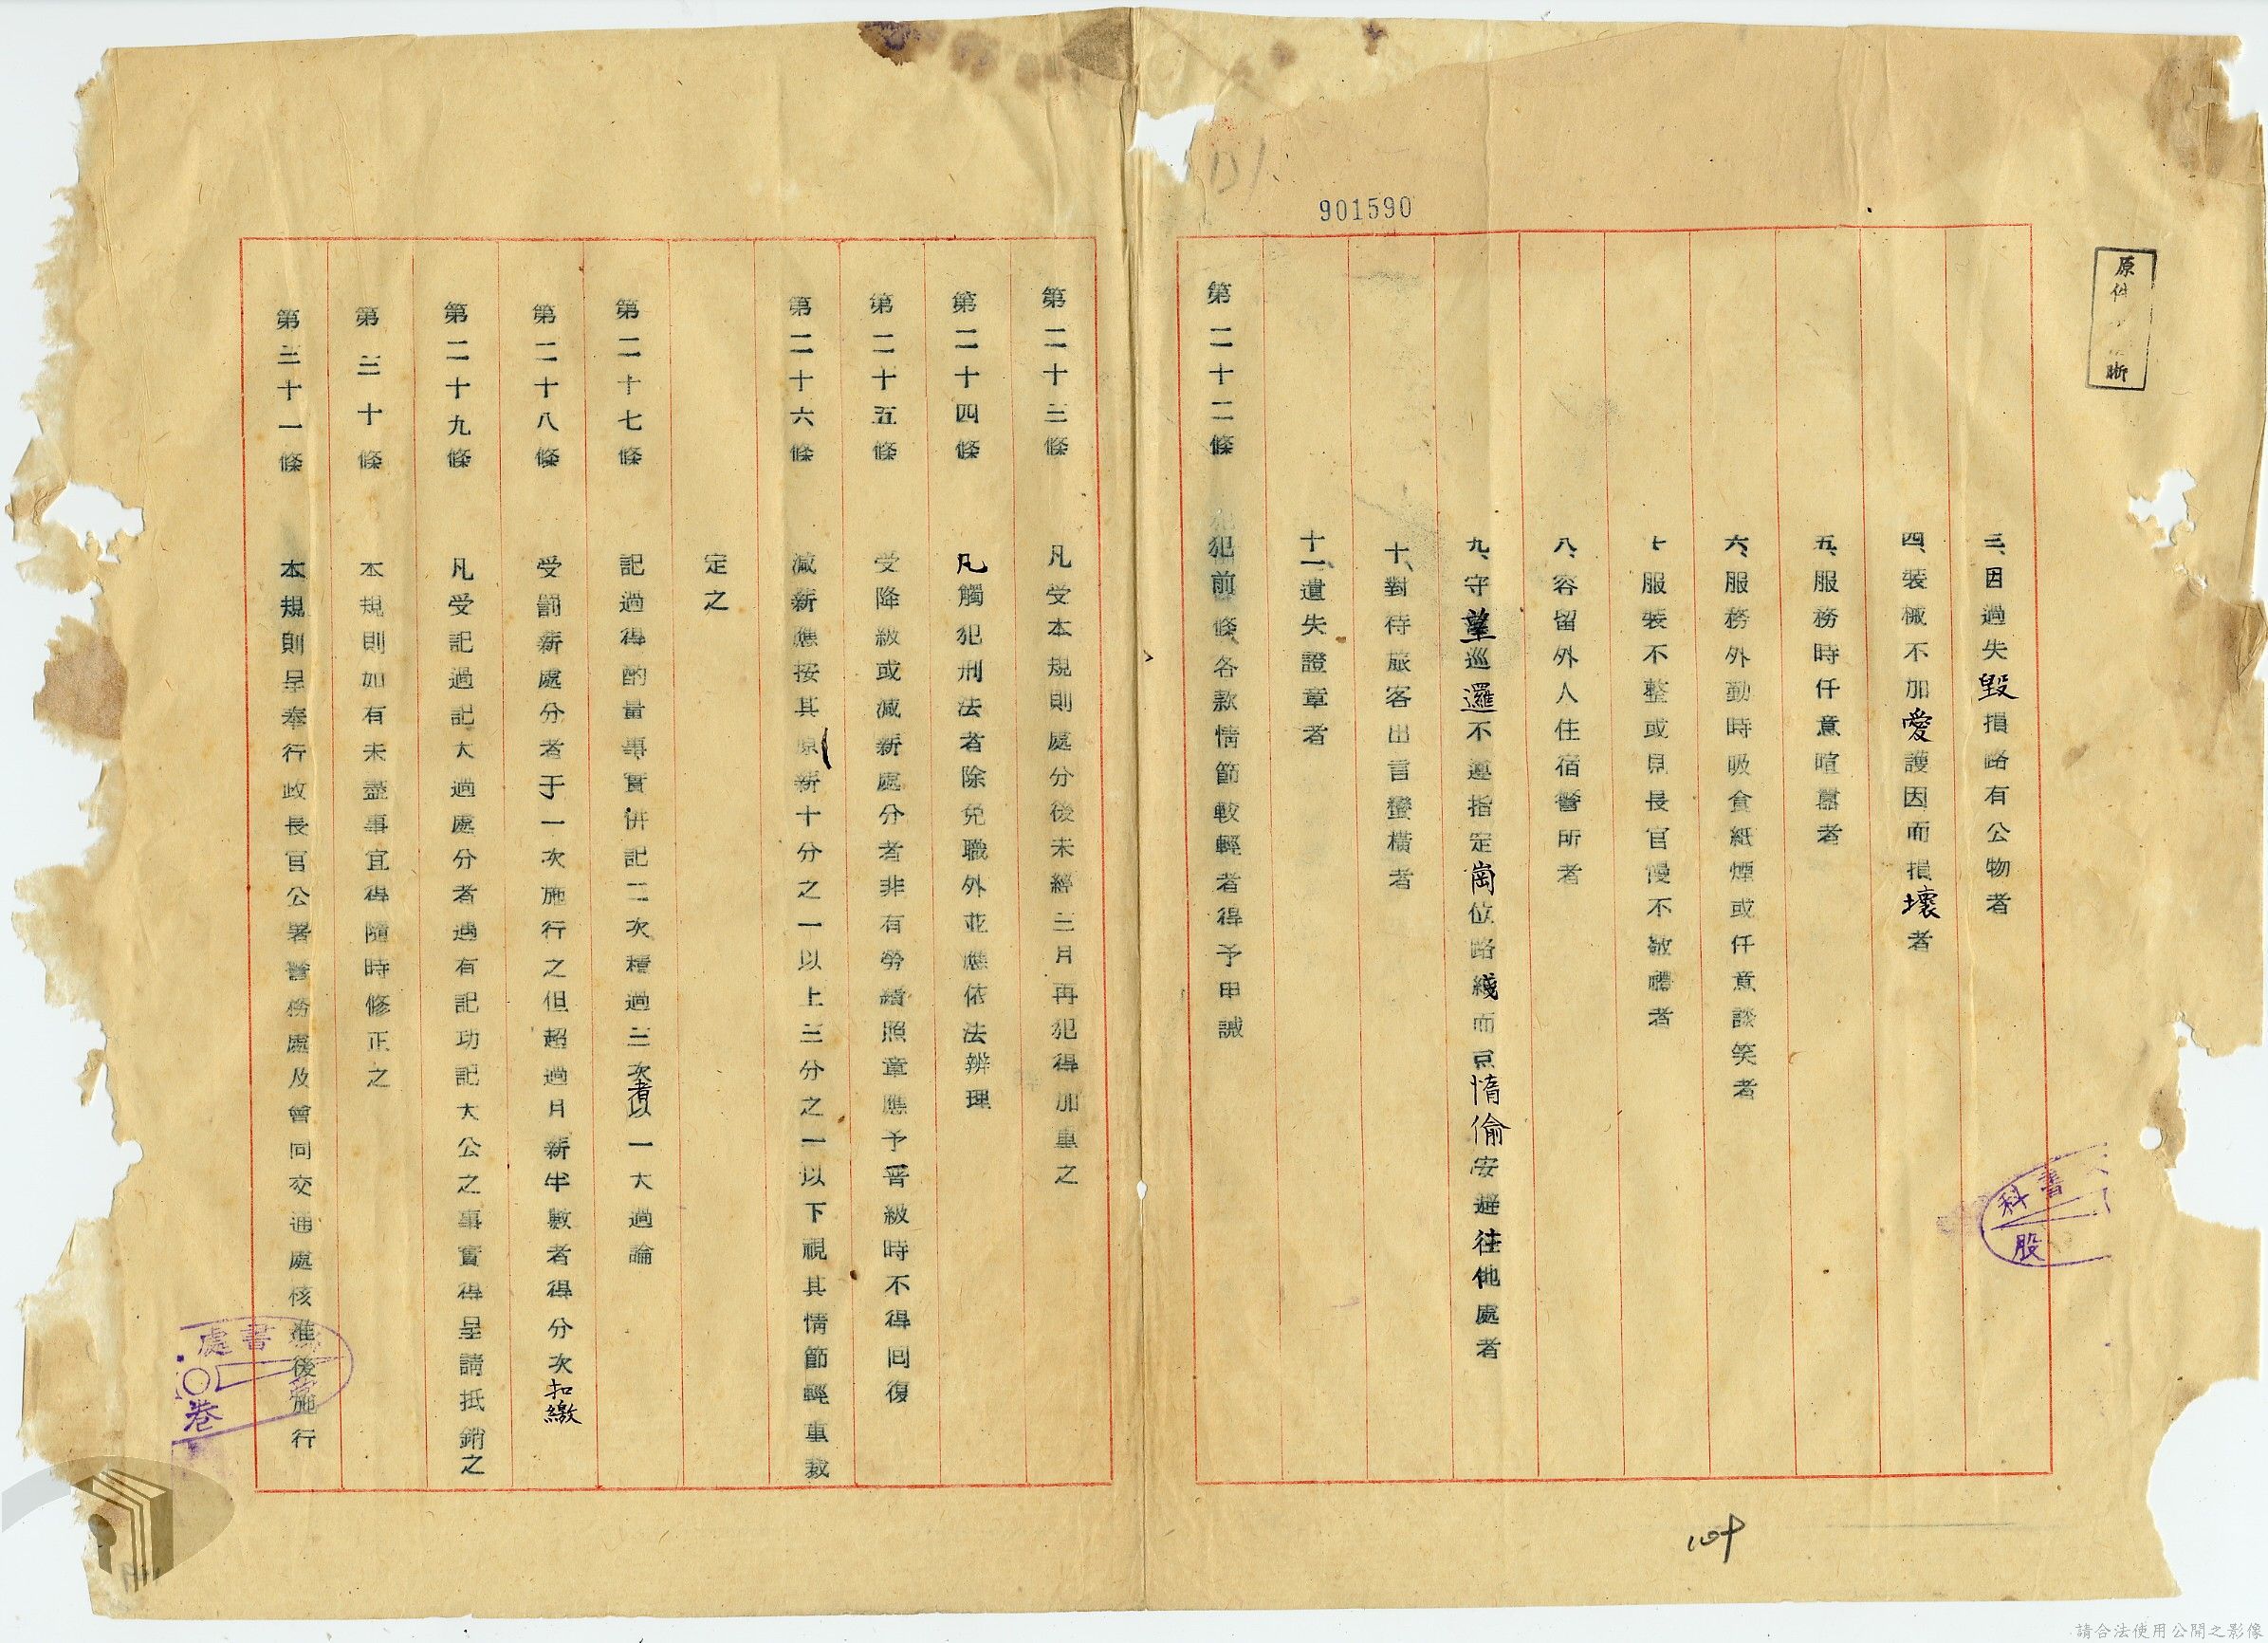 901590
原件
晰
三、因過失毀損路有公物者
四、裝械不加愛護因而損壞者
五、服務時任意喧囂者
六、服務外勤時吸食紙煙或任意談笑者
服裝不整或見長官慢不敬禮者
八、容留外人住宿警所者
九、守望巡邏不遵指定崗位路綫而惰偷安避往他處者
十、對待旅客出言蠻橫者
十一、遺失證章者
第二十二條 犯前條各款情節較輕者得予申誡
第二十三條 凡受本規則處分後未經三月再犯得加重之
第二十四條 凡觸犯刑法者除免職外並應依法辨理
第二十五條 受降級或減薪處分者非有勞績照章應予晋級時不得回復
第二十六條 減薪應按其原薪十分之一以上三分之一以下視其情節輕重裁
定之
第二十七條 記過得酌量事實併記二次積過三次者以一大過論
第二十八條 受罰薪處分者于一次施行之但超過月薪半數者得分次扣繳
第二十九條 凡受記過記大過處分者遇有記功記大公之事實得呈請抵銷之
第三十條 本規則如有未盡事宜得隨時修正之
第三十一條 本規則呈奉行政長官公署警務處及會同交通處核准後施行
書科
股
書處
卷
請合法使用公開之影像